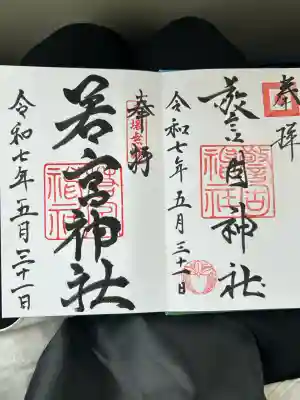 奉拝
警固神社
令和七年五月三十一日
奉拝
若宮神社
令和七年五月三十一日